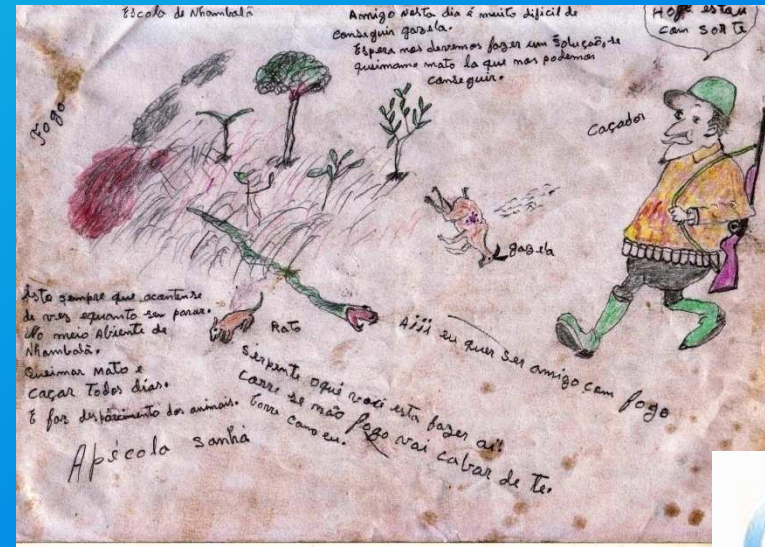 Escola de Nhambalã
Amigo nesta dia é muito dificil de
conseguir gazela.
Espera nos devemos fazer um Soluçaõ, se
queimamo mato la que nos podemos
conseguir.
Hoje estau
com sorte
Fogo
Caçador
gazela
Rato
Isto sempre que acontense
de vez equanto seu parar.
No meio Abiente de
Nhambalã.
Queimar mato e
caçar Todos dias.
E faz desparcimento dos animais.
Apécola sanhá
Aiii eu quer ser amigo com fogo
Serpente oqué voce esta fazer ai!
Corre se não fogo vai cabar de te.
Corre como eu.